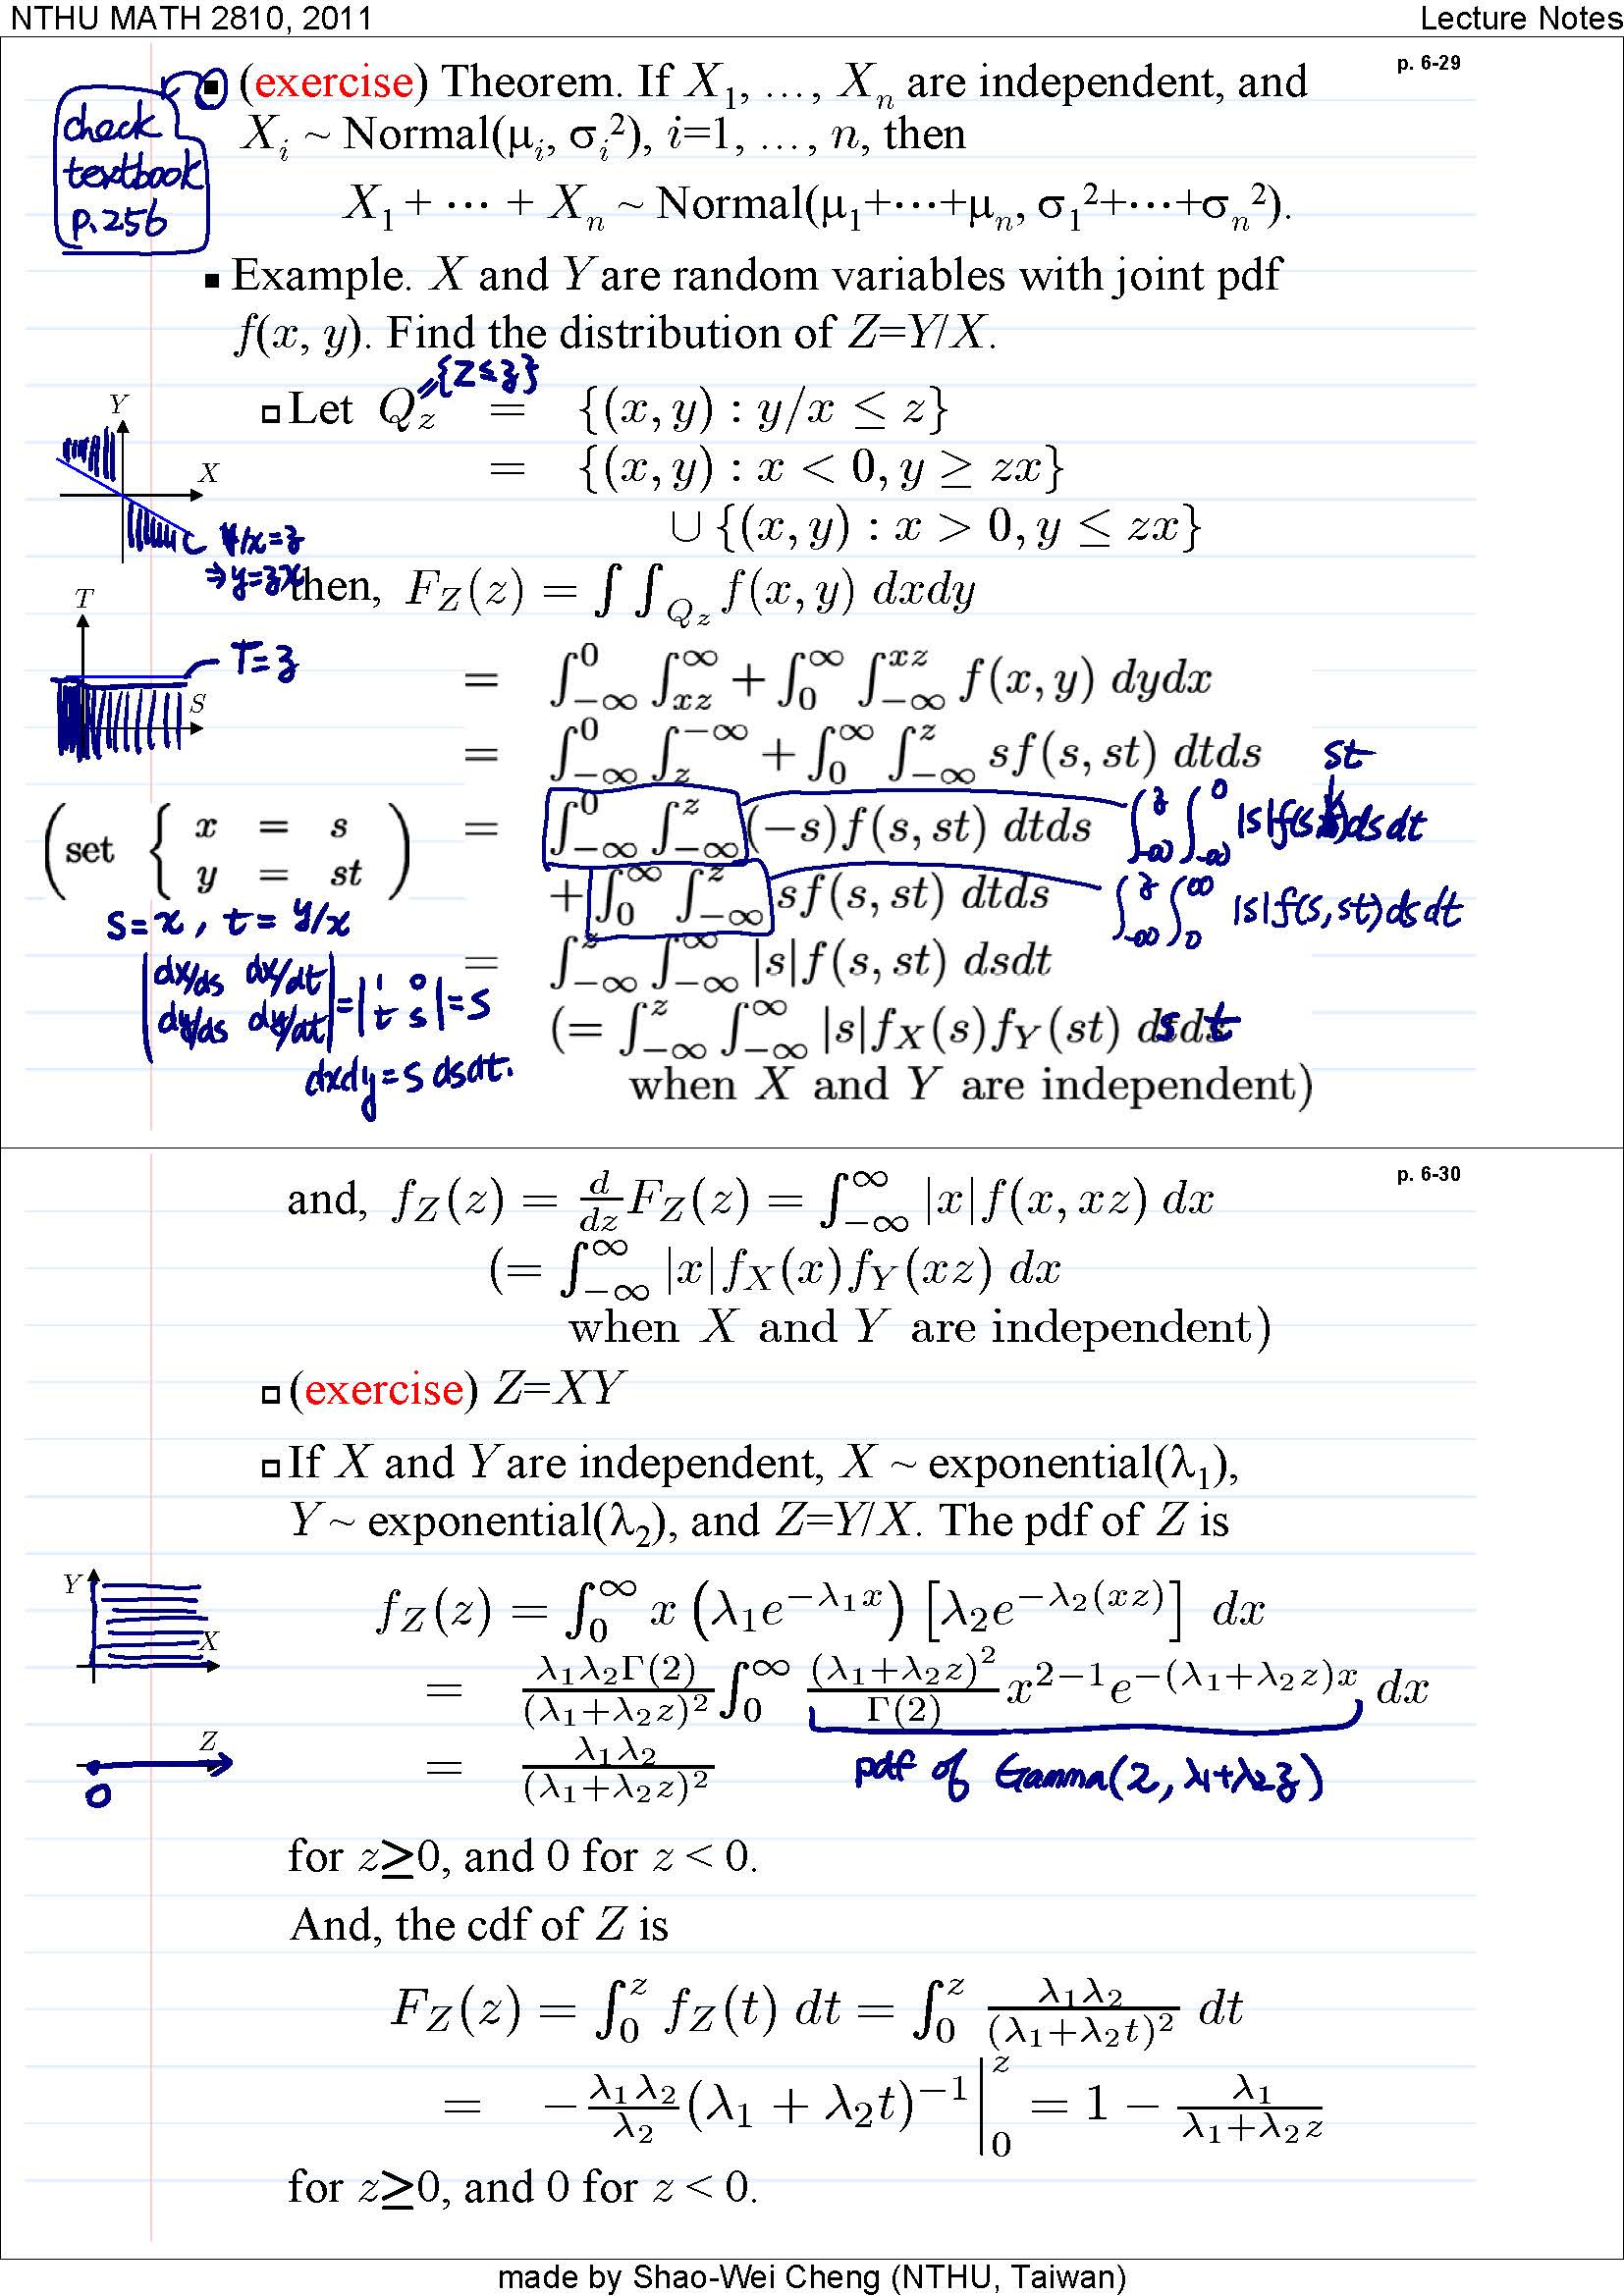 NTHU MATH 2810, 2011
Lecture Notes
p. 6-29
(exercise) Theorem. If X₁, …, Xₙ are independent, and
Xᵢ ~ Normal(μᵢ, σᵢ²), i=1, …, n, then
X₁ + ⋯ + Xₙ ~ Normal(μ₁+⋯+μₙ, σ₁²+⋯+σₙ²).
check
textbook
p.256
Example. X and Y are random variables with joint pdf
f(x, y). Find the distribution of Z=Y/X.
={Z≤z}
Let Q_z = {(x, y) : y/x ≤ z}
= {(x, y) : x < 0, y ≥ zx}
∪ {(x, y) : x > 0, y ≤ zx}
Y
X
y/x=z
⇒y=zx
then, F_Z(z) = ∫∫_{Q_z} f(x, y) dxdy
T
T=z
S
= ∫_{-∞}^{0} ∫_{xz}^{∞} + ∫_{0}^{∞} ∫_{-∞}^{xz} f(x, y) dydx
= ∫_{-∞}^{0} ∫_{z}^{-∞} + ∫_{0}^{∞} ∫_{-∞}^{z} sf(s, st) dtds
st
(set { x = s
y = st )
= ∫_{-∞}^{0} ∫_{-∞}^{z} (−s)f(s, st) dtds
∫_{-∞}^{z} ∫_{-∞}^{0} |s|f(s, ) dsdt
+ ∫_{0}^{∞} ∫_{-∞}^{z} sf(s, st) dtds
∫_{-∞}^{z} ∫_{0}^{∞} |s|f(s, st) dsdt
s=x, t=y/x
= ∫_{-∞}^{z} ∫_{-∞}^{∞} |s|f(s, st) dsdt
|dx/ds dx/dt|
|dy/ds dy/dt| = |1 0; t s| = s
dxdy = s dsdt.
(= ∫_{-∞}^{z} ∫_{-∞}^{∞} |s|f_X(s)f_Y(st) dsdt
when X and Y are independent)
p. 6-30
and, f_Z(z) = d/dz F_Z(z) = ∫_{-∞}^{∞} |x|f(x, xz) dx
(= ∫_{-∞}^{∞} |x|f_X(x)f_Y(xz) dx
when X and Y are independent)
(exercise) Z=XY
If X and Y are independent, X ~ exponential(λ₁),
Y ~ exponential(λ₂), and Z=Y/X. The pdf of Z is
Y
X
f_Z(z) = ∫_{0}^{∞} x (λ₁e^{−λ₁x}) [λ₂e^{−λ₂(xz)}] dx
= λ₁λ₂Γ(2)/(λ₁+λ₂z)² ∫_{0}^{∞} (λ₁+λ₂z)²/Γ(2) x^{2−1}e^{−(λ₁+λ₂z)x} dx
Z
0
= λ₁λ₂/(λ₁+λ₂z)²
pdf of Gamma(2, λ₁+λ₂z)
for z≥0, and 0 for z < 0.
And, the cdf of Z is
F_Z(z) = ∫_{0}^{z} f_Z(t) dt = ∫_{0}^{z} λ₁λ₂/(λ₁+λ₂t)² dt
= −λ₁λ₂/λ₂ (λ₁ + λ₂t)^{−1} |_{0}^{z} = 1 − λ₁/(λ₁+λ₂z)
for z≥0, and 0 for z < 0.
made by Shao-Wei Cheng (NTHU, Taiwan)